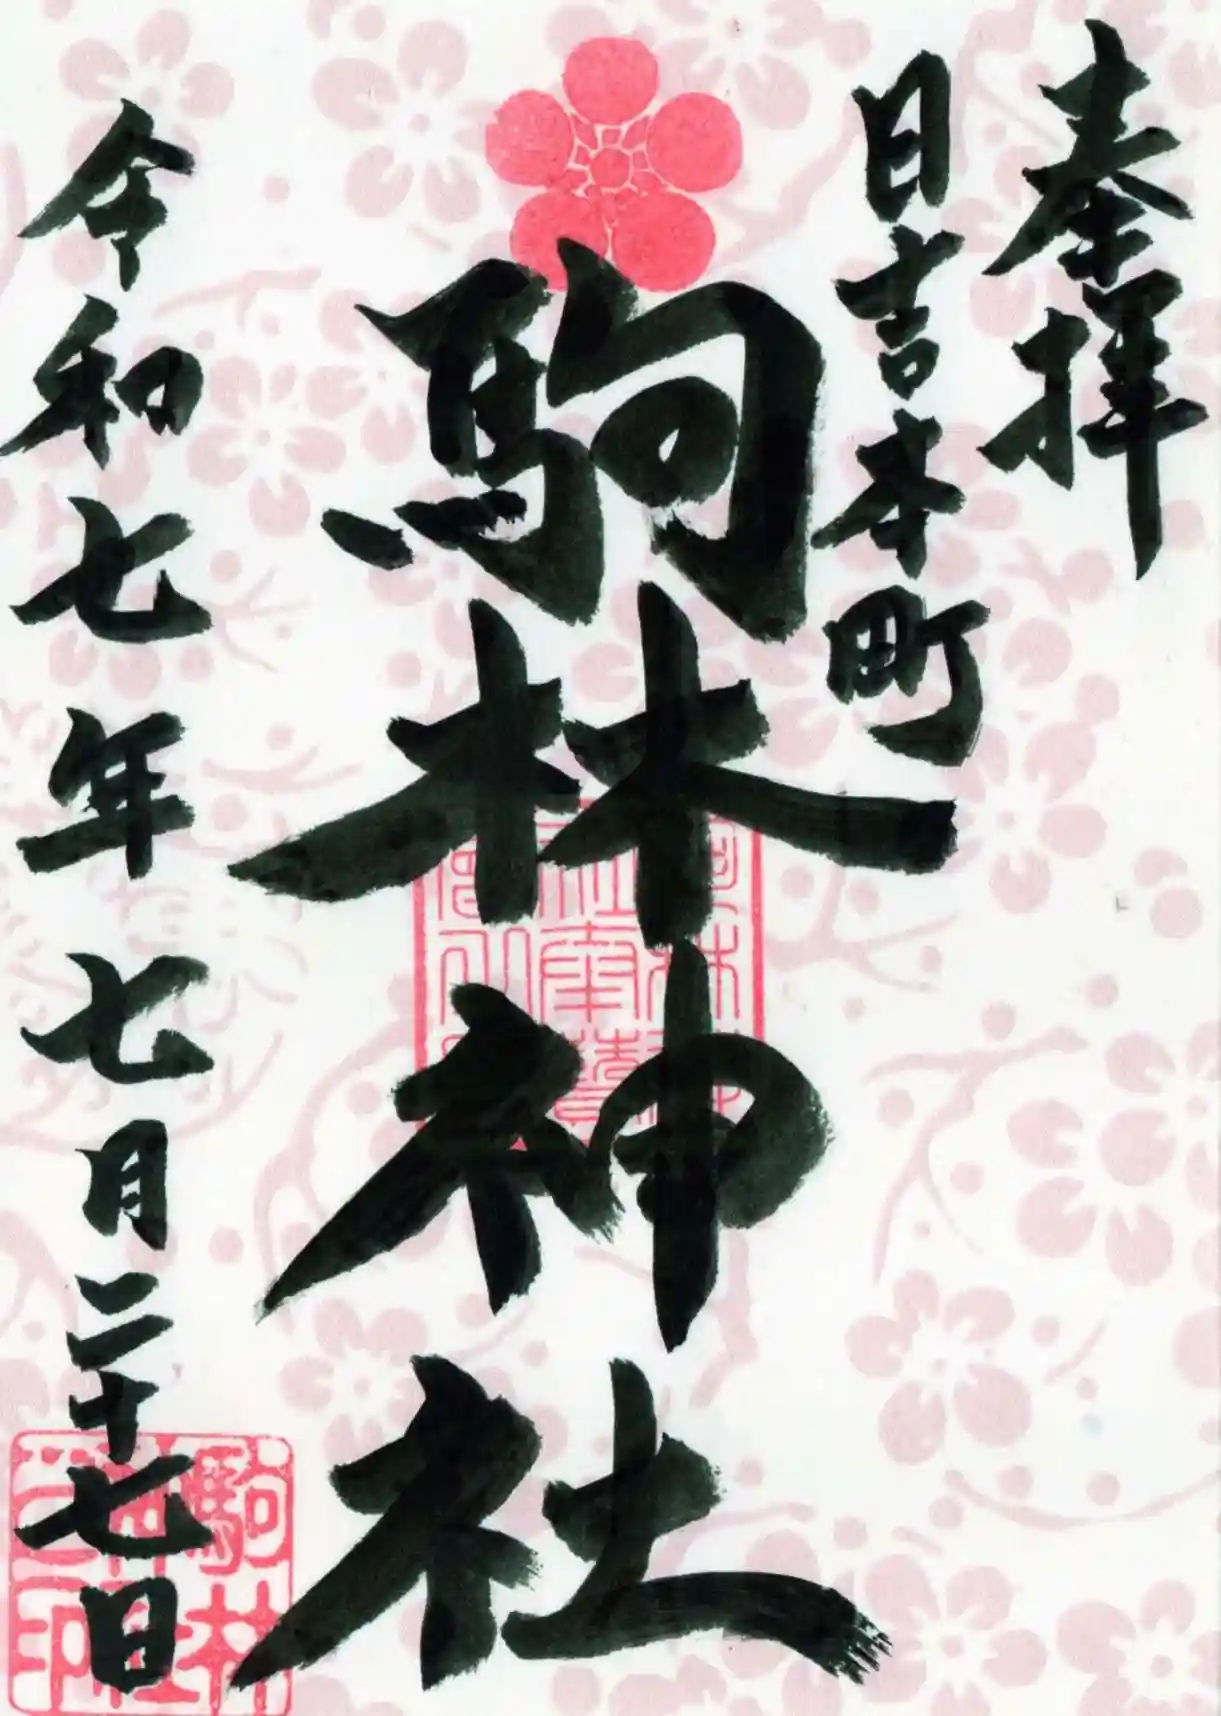 奉拝
日吉本町
駒林神社
令和七年七月二十七日
駒林
神社
之印